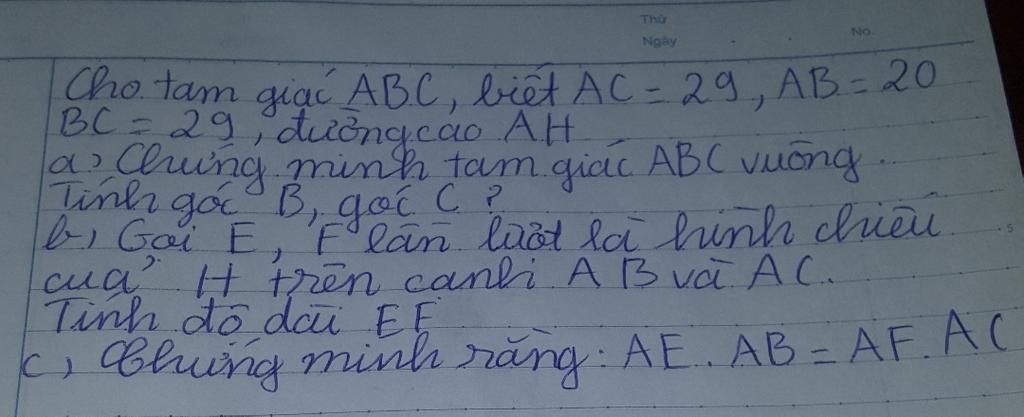 Thứ
Ngày No.
Cho tam giác ABC, biết AC = 29, AB = 20
BC = 29, đường cao AH
a) Chứng minh tam giác ABC vuông.
Tính góc B, góc C?
b) Gọi E, F lần lượt là hình chiếu
của H trên cạnh AB và AC.
Tính độ dài EF
c) Chứng minh rằng: AE. AB = AF. AC